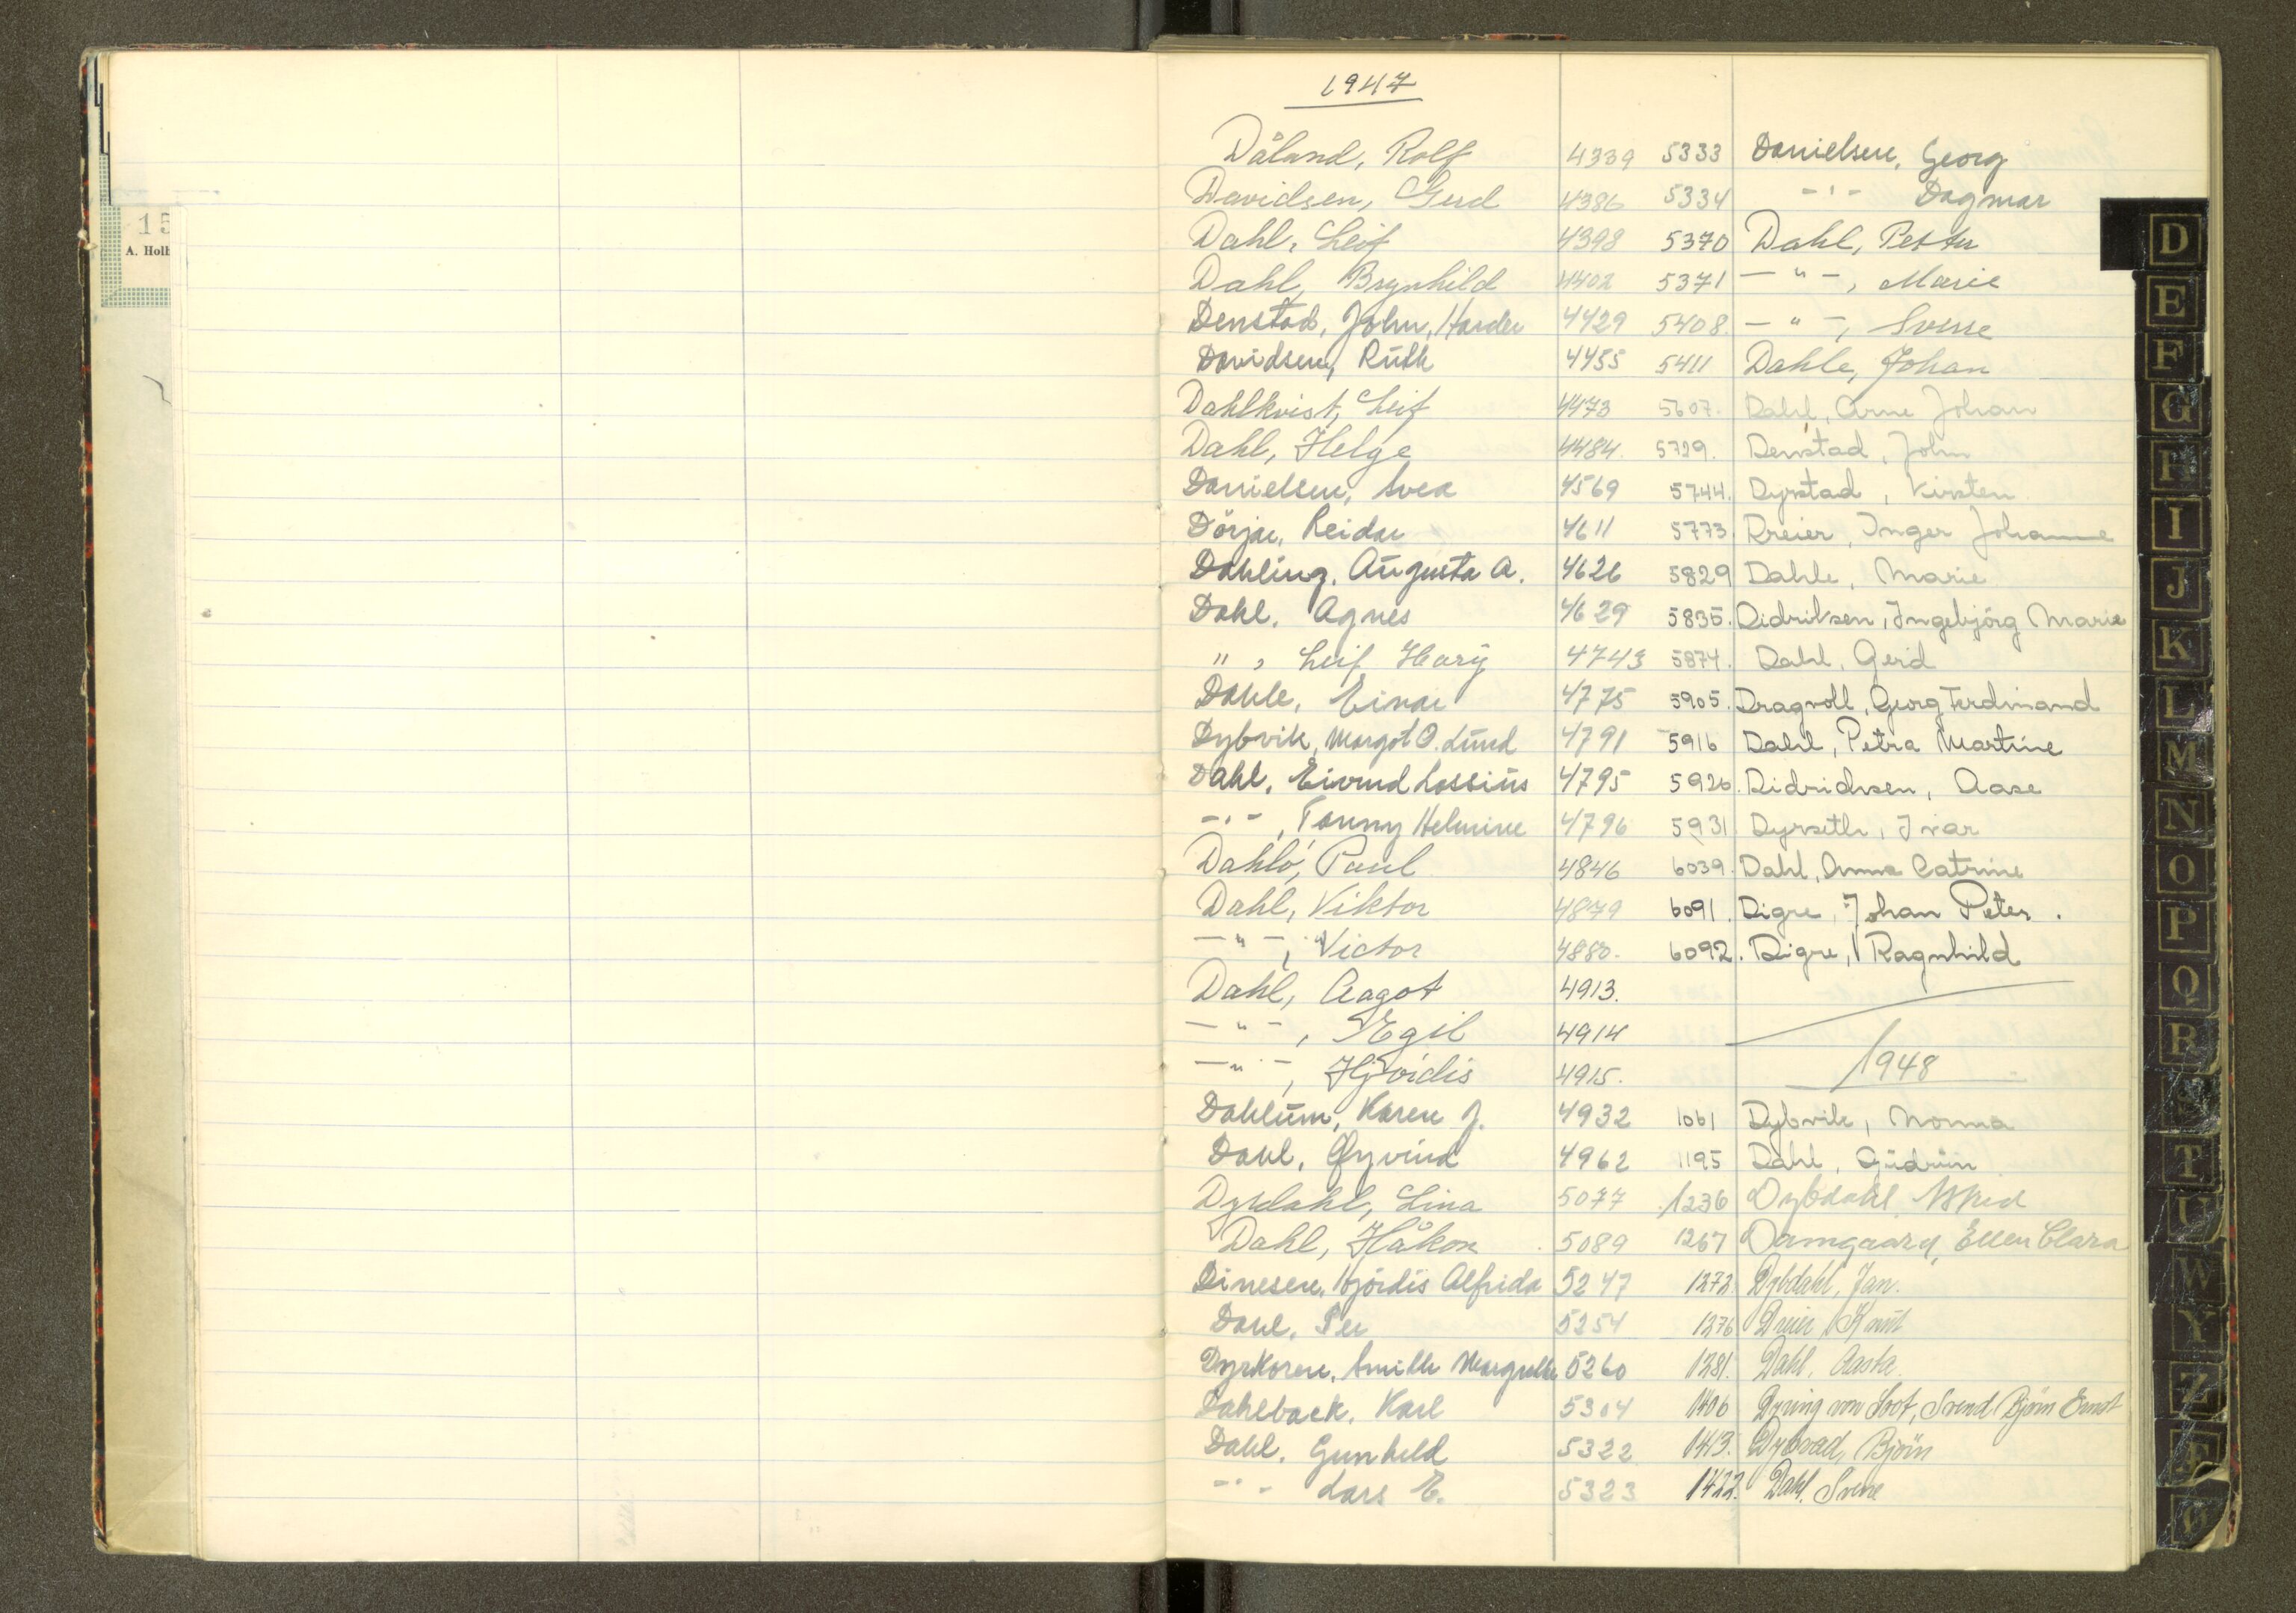 15
A. Holb
1947
Dåland, Rolf 4339
Davidsen, Gerd 4386
Dahl, Leif 4398
Dahl, Brynhild 4402
Denstad, John, Harder 4429
Davidsen, Ruth 4455
Dahlkvist, Leif 4473
Dahl, Helge 4484.
Danielsen, Svea 4569
Dörja, Reidar 4611
Dahling, Augusta A. 4626
Dahl, Agnes 4629
" , Leif Harry 4743
Dahle, Einar 4775
Dybvik, Margot O. Lund 4791
Dahl, Eivind Lossius 4795
-"-, Fanny Helmine 4796
Dahlö, Paul 4846
Dahl, Viktor 4879
-"-, Victor 4880.
Dahl, Aagot 4913.
-"-, Egil 4914
-"-, Hjördis 4915.
Dahlum, Karen J. 4932
Dahl, Øyvind 4962
Dyrdahl, Lina 5077
Dahl, Håkon 5089
Dinesen, Hjördis Alfrida 5247
Dahl, Per 5254
Dyrkoren, Smille Margrethe 5260
Dahlback, Karl 5304
Dahl, Gunhild 5322
-"- Lars E. 5323
5333 Danielsen, Georg
5334 -"- Dagmar
5370 Dahl, Petter
5371 -"-, Marie
5408. -"-, Sverre
5411 Dahle, Johan
5607. Dahl, Arne Johan
5729. Denstad, John
5744. Dyrstad, Kirsten
5773. Dreier, Inger Johanne
5829 Dahle, Marie
5835. Didriksen, Ingebjörg Marie
5874. Dahl, Gerd
5905. Dragvoll, Georg Ferdinand
5916 Dahl, Petra Martine
5926. Didrichsen, Aase
5931 Dyrseth, Ivar
6039. Dahl, Anna Catrine
6091. Digre, Johan Peter.
6092. Digre, Ragnhild
1948
1061 Dybvik, Norma
1195 Dahl, Gudrun
1236 Dybdahl,
1267 Damgaard, Ellen Clara
1272. Dybdahl, Jan.
1276 Dreier, Knut
1281. Dahl, Aasta.
1406 Dyring von Soot, Svend Björn Ernst
1413. Dybvad, Björn
1422. Dahl, Sverre
D
E
F
G
H
I
J
K
L
M
N
O
P
Q
R
S
T
U
W
Y
Z
Æ
Ø